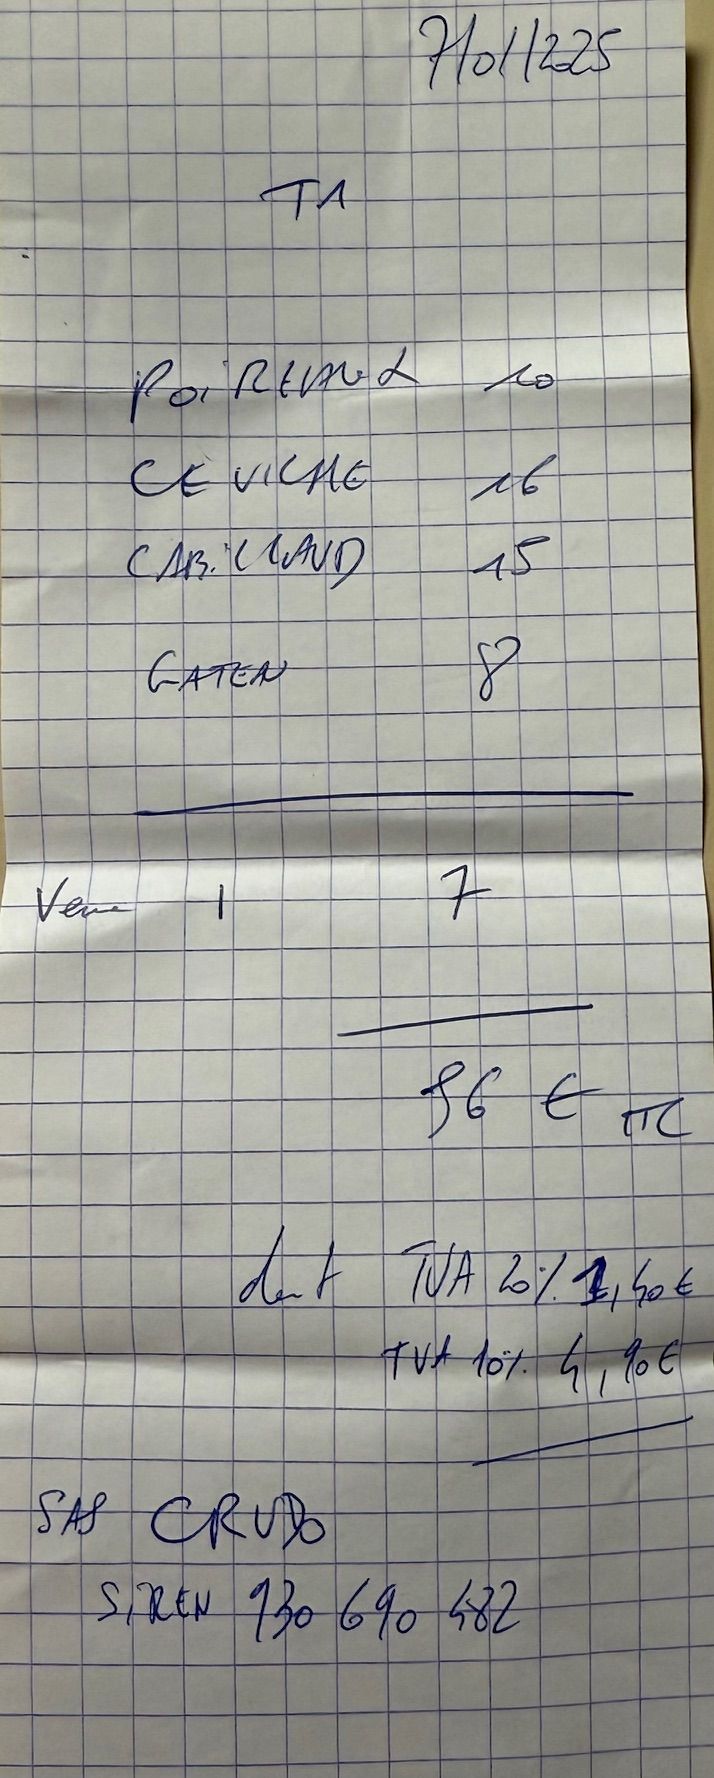 7/01/2025
T1
POIREAUX 10
CEVICHE 16
CABILLAUD 15
GATEAU 8
Verre 1 7
56 € TTC
dont TVA 20% 1,40€
TVA 10% 4,90€
SAS CRUDO
SIREN 930 690 482